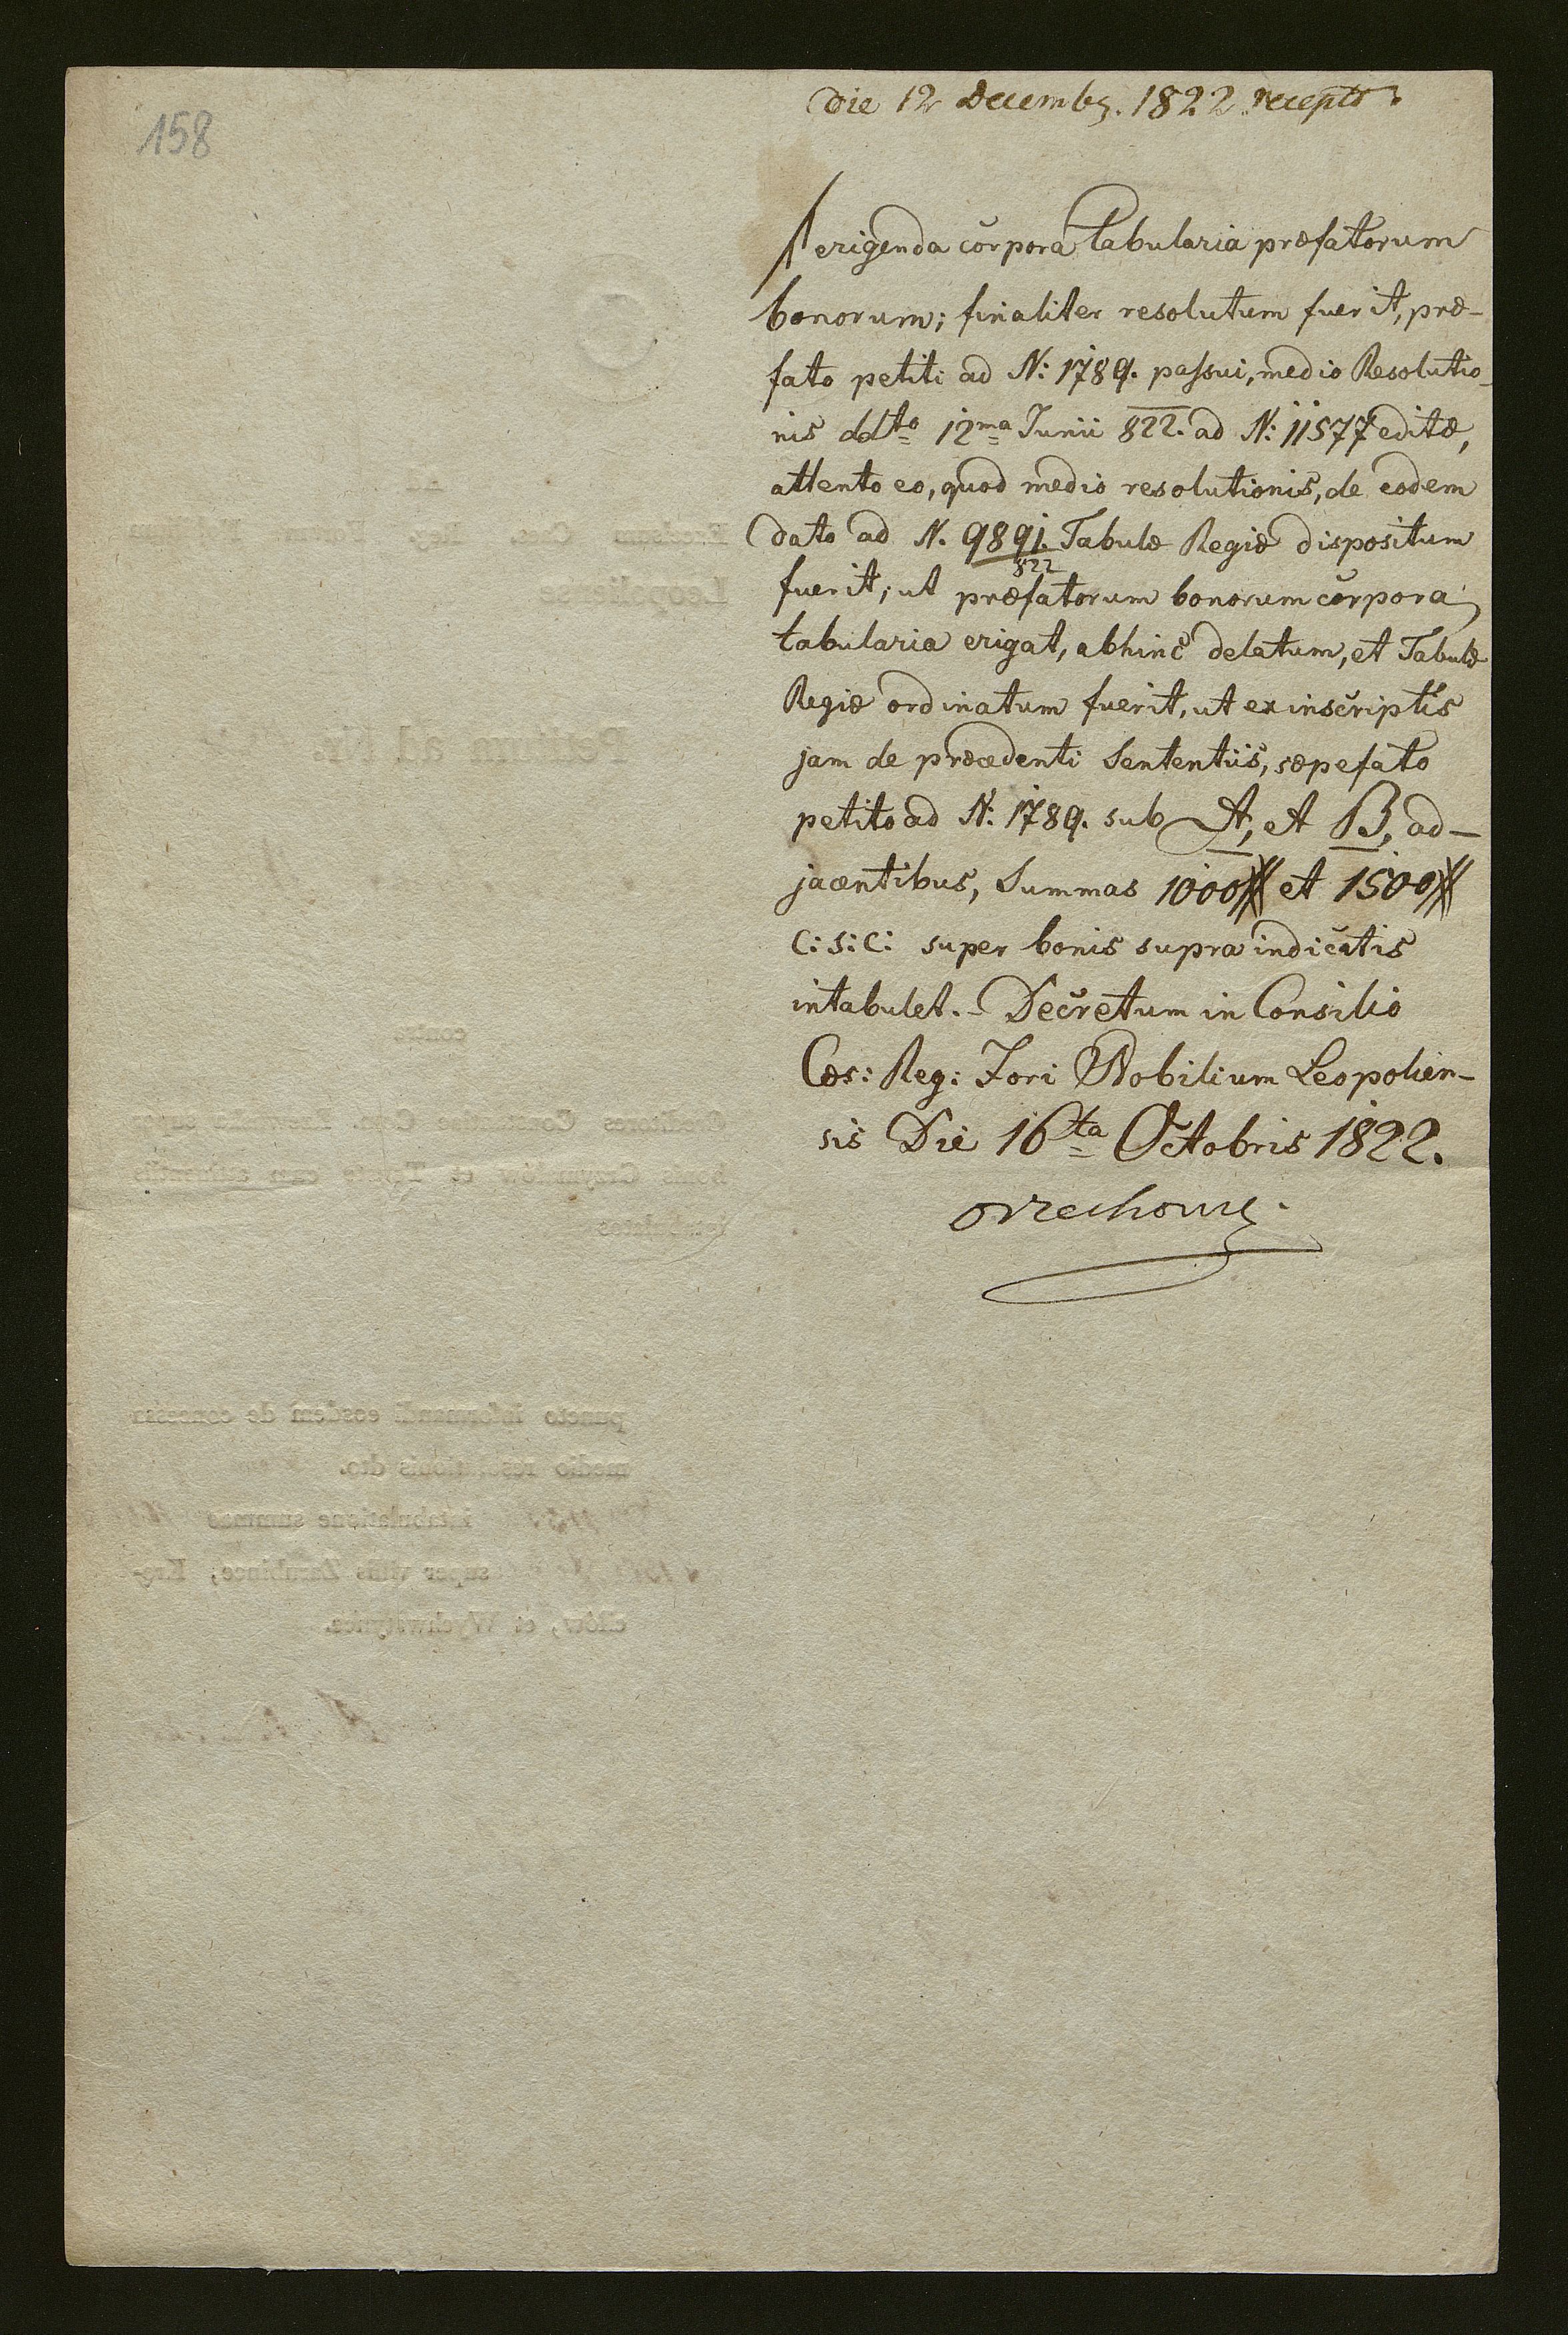 158
Die 12 Decembr. 1822 recepto
erigenda corpora Tabularia præfatorum
bonorum; finaliter resolutum fuerit, præ-
fato petiti ad N: 1789. passui, medio Resolutio-
nis ddto 12ma Junii 822. ad N: 11577 editæ,
attento eo, quod medio resolutionis, de eodem
dato ad N. 9891. Tabulæ Regiæ dispositum
822
fuerit, ut præfatorum bonorum corpora
tabularia erigat, abhinc delatum, et Tabulæ
Regiæ ordinatum fuerit, ut ex inscriptis
jam de præcedenti Sententiis, sæpefato
petito ad N: 1789. sub A, et B, ad-
jacentibus, Summas 1000# et 1500#
C: S: C: super bonis supra indicatis
intabulet. – Decretum in Consilio
Cæs: Reg: Fori Nobilium Leopolien-
sis Die 16ta Octobris 1822.
Excelsum Caes. Reg.
Leopoliense
Petitum ad Nr.
contra
Creditores
bonis Grzymałów et
intabulatos
puncto informandi eosdem de concessa
medio resolutionis dto.
intabulatione summae
super villis Zarubince, Krę-
ciłów, et Wychwatyńce.